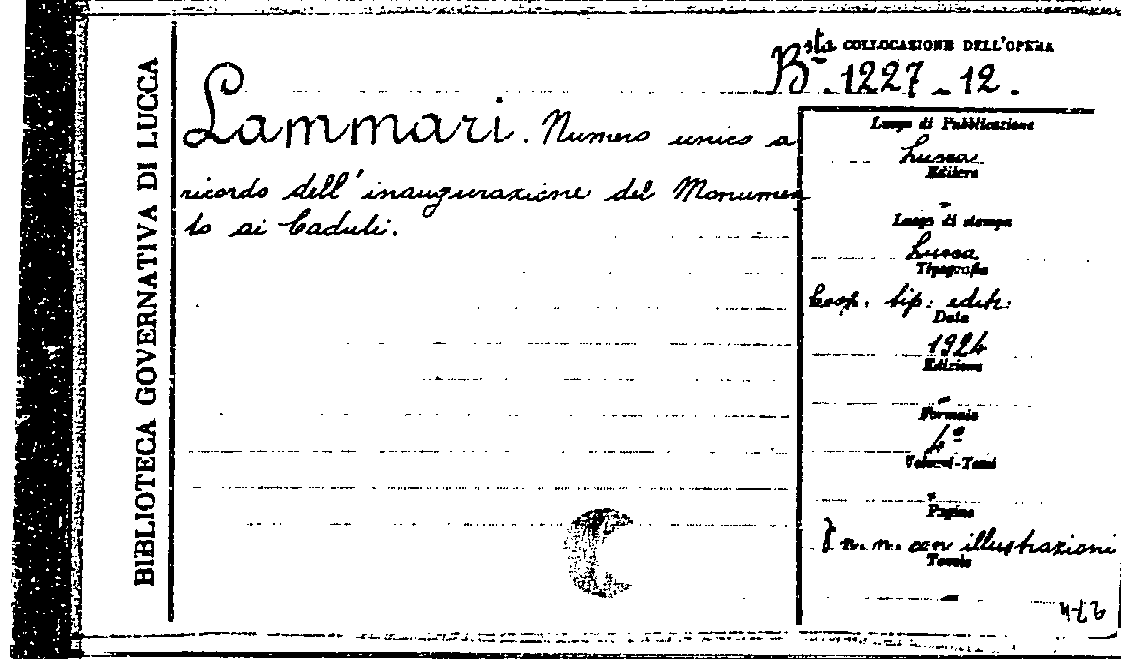 BIBLIOTECA GOVERNATIVA DI LUCCA
COLLOCAZIONE DELL'OPERA
Bsta. 1227 - 12.
Lammari. Numero unico a
ricordo dell'inaugurazione del Monumen
to ai Caduti.
Luogo di Pubblicazione
Lucca
Editore
-
Luogo di stampa
Lucca
Tipografia
Coop. tip. edit.
Data
1924
Edizione
-
Formato
4º
Volumi-Tomi
-
Pagine
n. n. con illustrazioni
Tavole
-